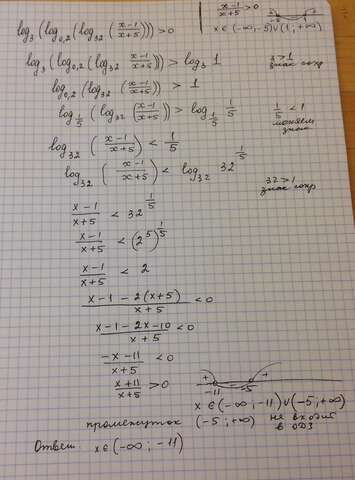 log₃(log₀,₂(log₃₂((x-1)/(x+5)))) > 0
(x-1)/(x+5) > 0
x ∈ (-∞; -5) ∪ (1; +∞)
log₃(log₀,₂(log₃₂((x-1)/(x+5)))) > log₃ 1
3 > 1
знак сохр
log₀,₂(log₃₂((x-1)/(x+5))) > 1
log_{1/5}(log₃₂((x-1)/(x+5))) > log_{1/5} 1/5
1/5 < 1
меняем
знак
log₃₂((x-1)/(x+5)) < 1/5
log₃₂((x-1)/(x+5)) < log₃₂ 32^{1/5}
32 > 1
знак сохр
(x-1)/(x+5) < 32^{1/5}
(x-1)/(x+5) < (2⁵)^{1/5}
(x-1)/(x+5) < 2
(x-1-2(x+5))/(x+5) < 0
(x-1-2x-10)/(x+5) < 0
(-x-11)/(x+5) < 0
(x+11)/(x+5) > 0
+ - +
-11 -5
x ∈ (-∞; -11) ∪ (-5; +∞)
промежуток (-5; +∞) не входит
в ОДЗ
Ответ x ∈ (-∞; -11)